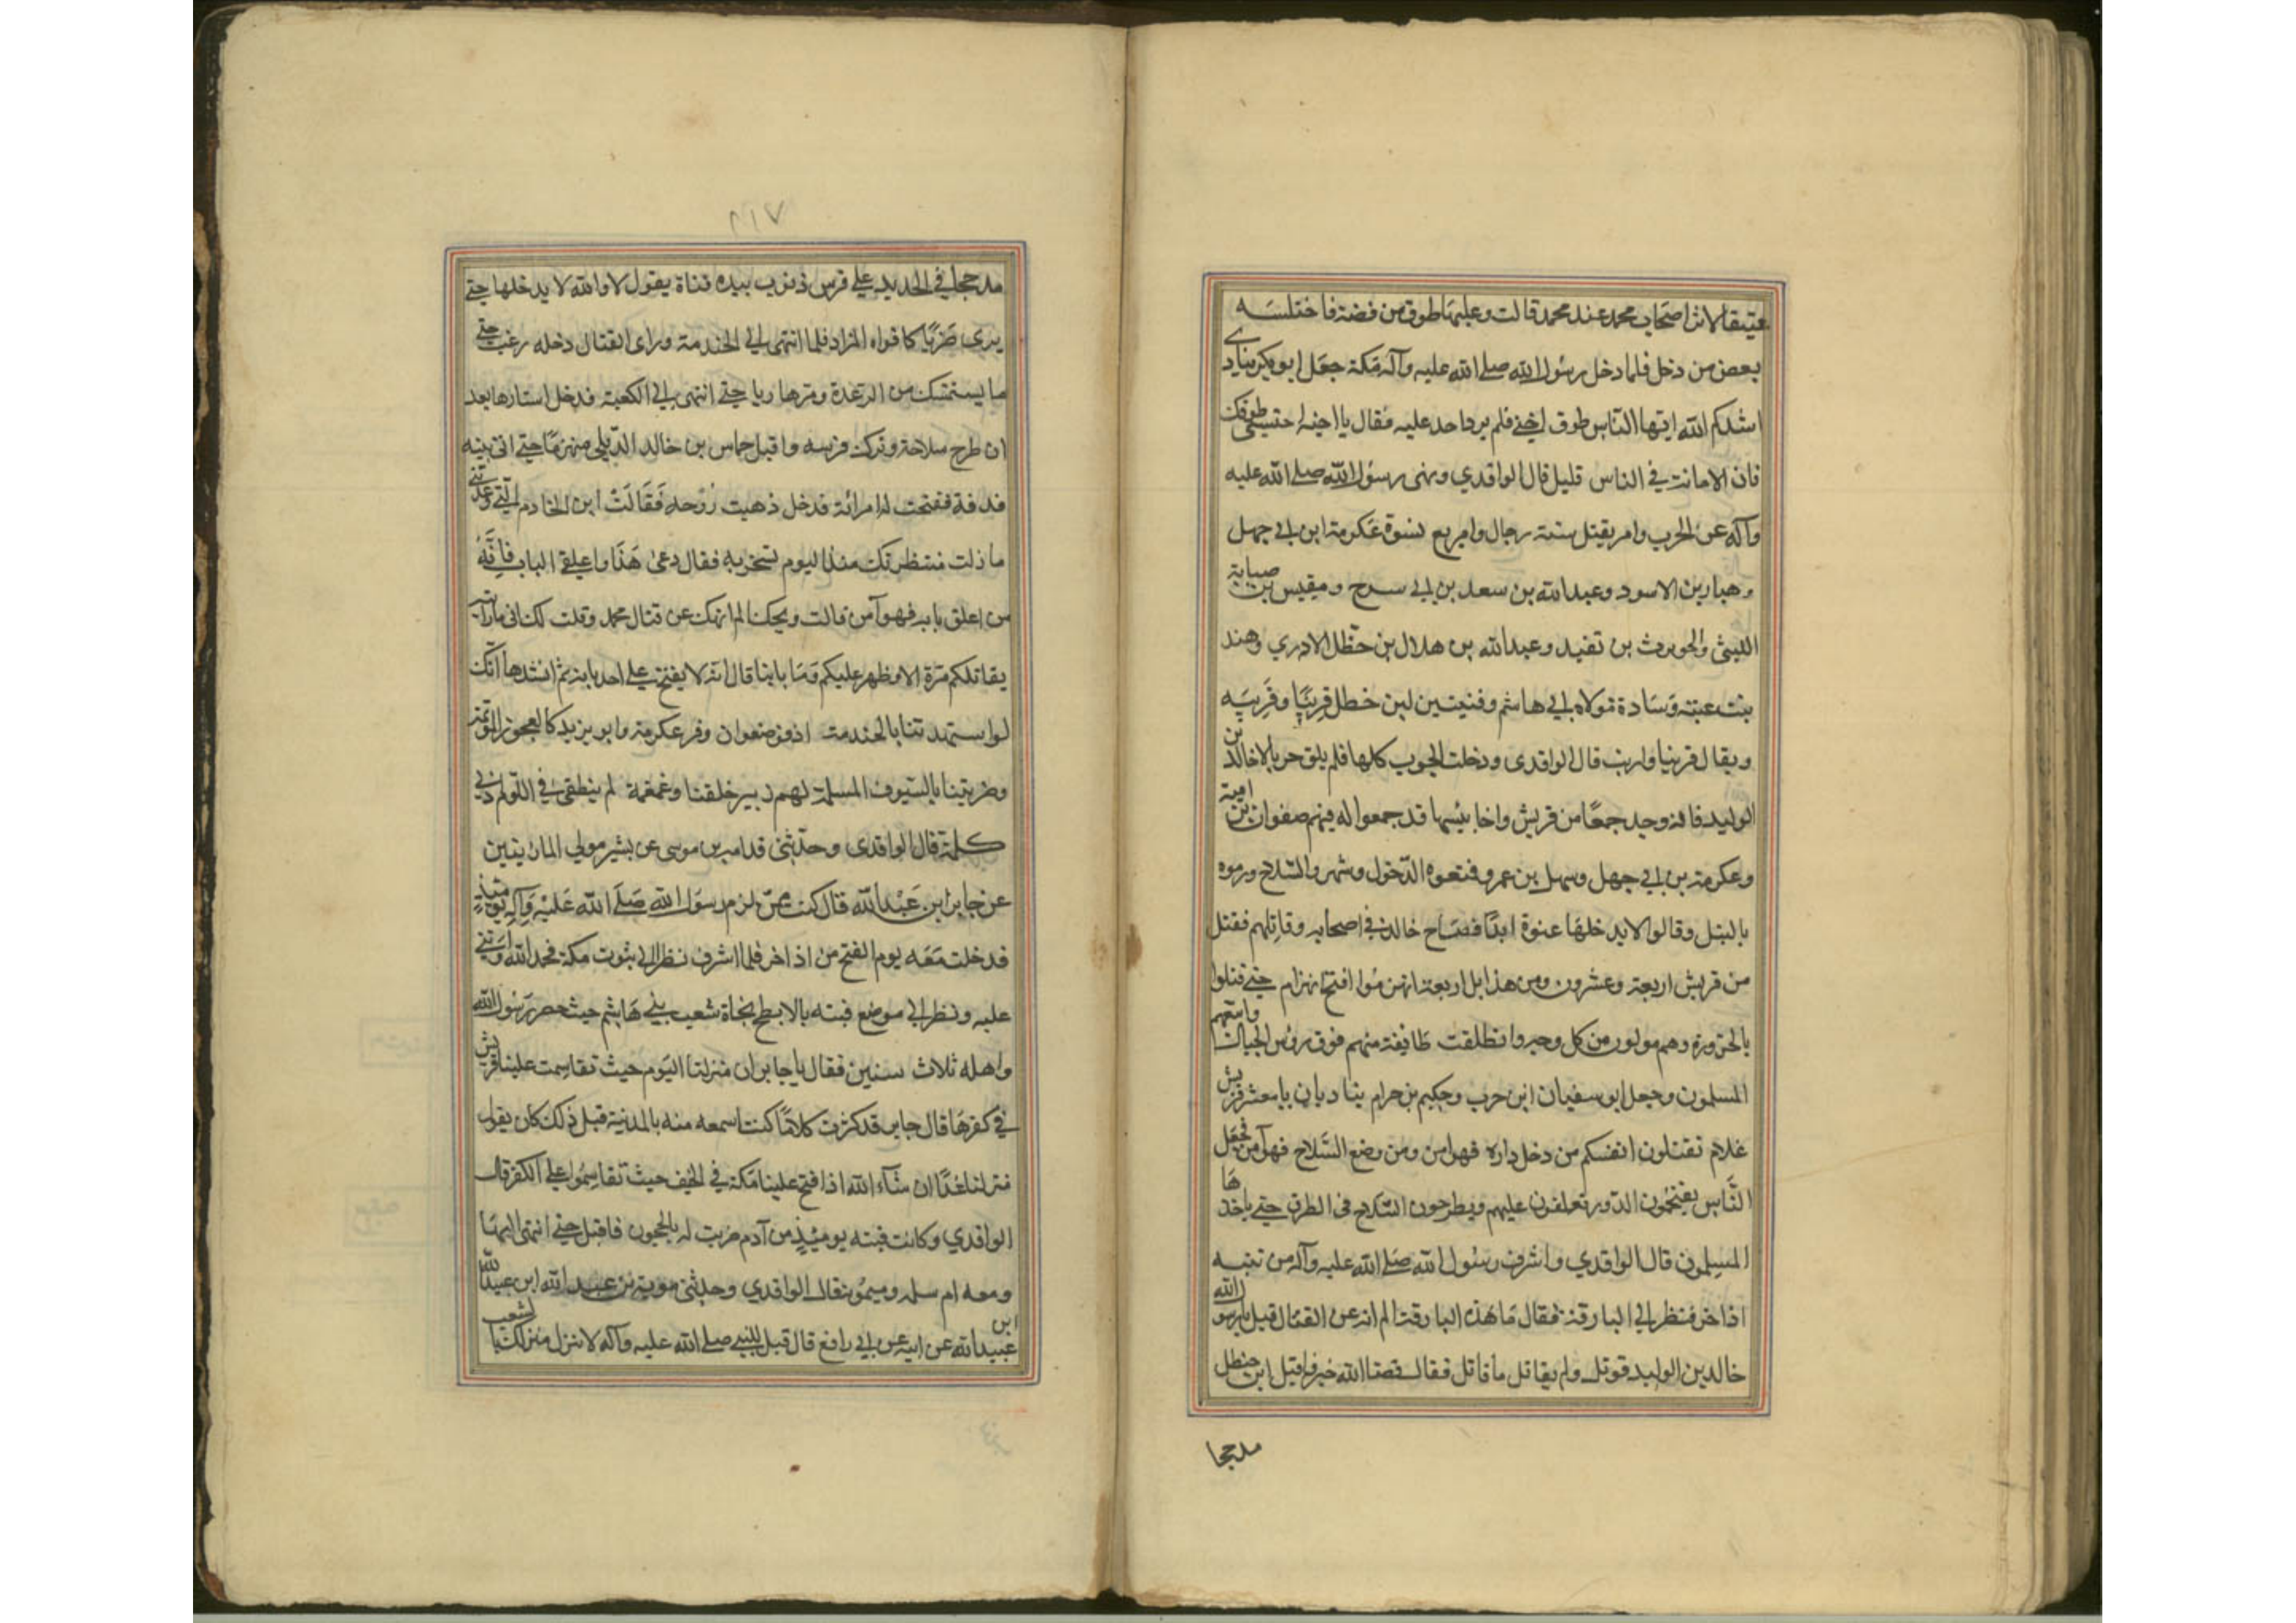 عتيقا لاثر اصحاب محمد عند محمد قالت وعليها طوق من فضة فاختلسه
بعض من دخل فلما دخل رسول الله صلى الله عليه وآله مكة جعل ابو بكر ينادي
انشدكم الله ايها الناس طوق اختي فلم يرد احد عليه فقال يا اخيه احتسبي طوقك
فان الامانة في الناس قليل قال الواقدي ونهى رسول الله صلى الله عليه
وآله عن الحرب وامر بقتل ستة رجال واربع نسوة عكرمة ابن ابي جهل
وهبار بن الاسود وعبد الله بن سعد بن ابي سرح ومقيس بن صبابة
الليثي والحويرث بن نفيد وعبد الله بن هلال بن خطل الادري وهند
بنت عتبة وسادة مولاه ابي هاشم وقنيتين لبن خطل قرينا وقريبه
ويقال قرينا وارنب قال الواقدي ودخلت الجنوب كلها فلم يلق حربا الا خالد بن
الوليد فانه وجد جمعا من قريش واخابيشها قد جمعوا له فيهم صفوان بن امية
وعكرمة بن ابي جهل وسهل بن عمرو فمنعوه الدخول وشهروا السلاح ورموه
بالنبل وقالوا لا يدخلها عنوة ابدا فصاح خالد في اصحابه وقاتلهم فقتل
من قريش اربعة وعشرون ومن هذابل اربعة انهزموا اقبح انهزام حتى قتلوا
بالحزورة وهم مولون من كل وجه وانطلقت طايفة منهم فوق رؤس الجبال واتبعهم
المسلمون وجعل ابو سفيان ابن حرب وحكيم بن حزام يناديان يا معشر قريش
علام تقتلون انفسكم من دخل داره فهو امن ومن وضع السلاح فهو آمن فجعل
الناس يقتحمون الدور ويغلقون عليهم ويطرحون السلاح في الطرق حتى ياخذها
المسلمون قال الواقدي واشرف رسول الله صلى الله عليه وآله من ثنيه
اذاخر فنظر الى البارقة فقال ما هذه البارقة الم انه عن القتال قيل يا رسول الله
خالد بن الوليد قوتل ولم يقاتل ما قاتل فقال قضا الله خير واقبل ابن خطل
مدججا
٢١٧
مدججا في الحديد على فرس ذنوب بيده قناة يقول لا والله لا يدخلها حتى
يرى ضربا كافواه المزاد فلما انتهى الى الخندمة وراى القتال دخله رعب حتى
ما يستمسك من الرعدة ومر هاربا حتى انتهى الى الكعبة فدخل استارها بعد
ان طرح سلاحه وترك فرسه واقبل حماس بن خالد الديلي منهزما حتى اتى بيته
فدقه ففتحت له امرائه فدخل ذهبت روحه فقالت اين الخادم التي وعدتني
ما زلت منتظرتك منذ اليوم تسخر به فقال دعى هذا واغلقي الباب فانه
من اغلق بابه فهو آمن قالت ويحك الم انهك عن قتال محمد وقلت لك اني ما رايته
يقاتلكم مرة الا وظهر عليكم وما بابنا قال انه لا يفتح على احد بابه ثم انشدها انك
لو استهدتنا بالخندمة اذ فر صفوان وفر عكرمة وابو يزيد كالعجوز المؤتمة
وضربتنا بالسيوف المسلمة لهم زبير خلفنا وغمغمة لم ينطقي في اللوم ادنى
كلمة قال الواقدي وحدثني قدامه بن موسى عن بشير مولى المازنيين
عن جابر ابن عبد الله قال كنت ممن لزم رسول الله صلى الله عليه وآله يومئذ
فدخلت معه يوم الفتح من اذاخر فلما اشرف نظر الى بيوت مكة فحمد الله واثنى
عليه ونظر الى موضع قبته بالابطح تجاة شعب بني هاشم حيث حصر رسول الله
واهله ثلاث سنين فقال يا جابر ان منزلنا اليوم حيث تقاسمت علينا قريش
في كفرها قال جابر فذكرت كلاما كنت اسمعه منه بالمدينة قبل ذلك كان يقول
منزلنا غدا ان شاء الله اذا فتح علينا مكة في الخيف حيث تقاسموا على الكفر قال
الواقدي وكانت قبته يومئذ من آدم ضربت له بالحجون فاقبل حتى انتهى اليها
ومعه ام سلمه وميمونة قال الواقدي وحدثني معوية بن عبد الله ابن عبيد الله
عبيد الله عن ابيه عن ابي رافع قال قيل للنبي صلى الله عليه وآله لا تنزل منزلك بالشعب